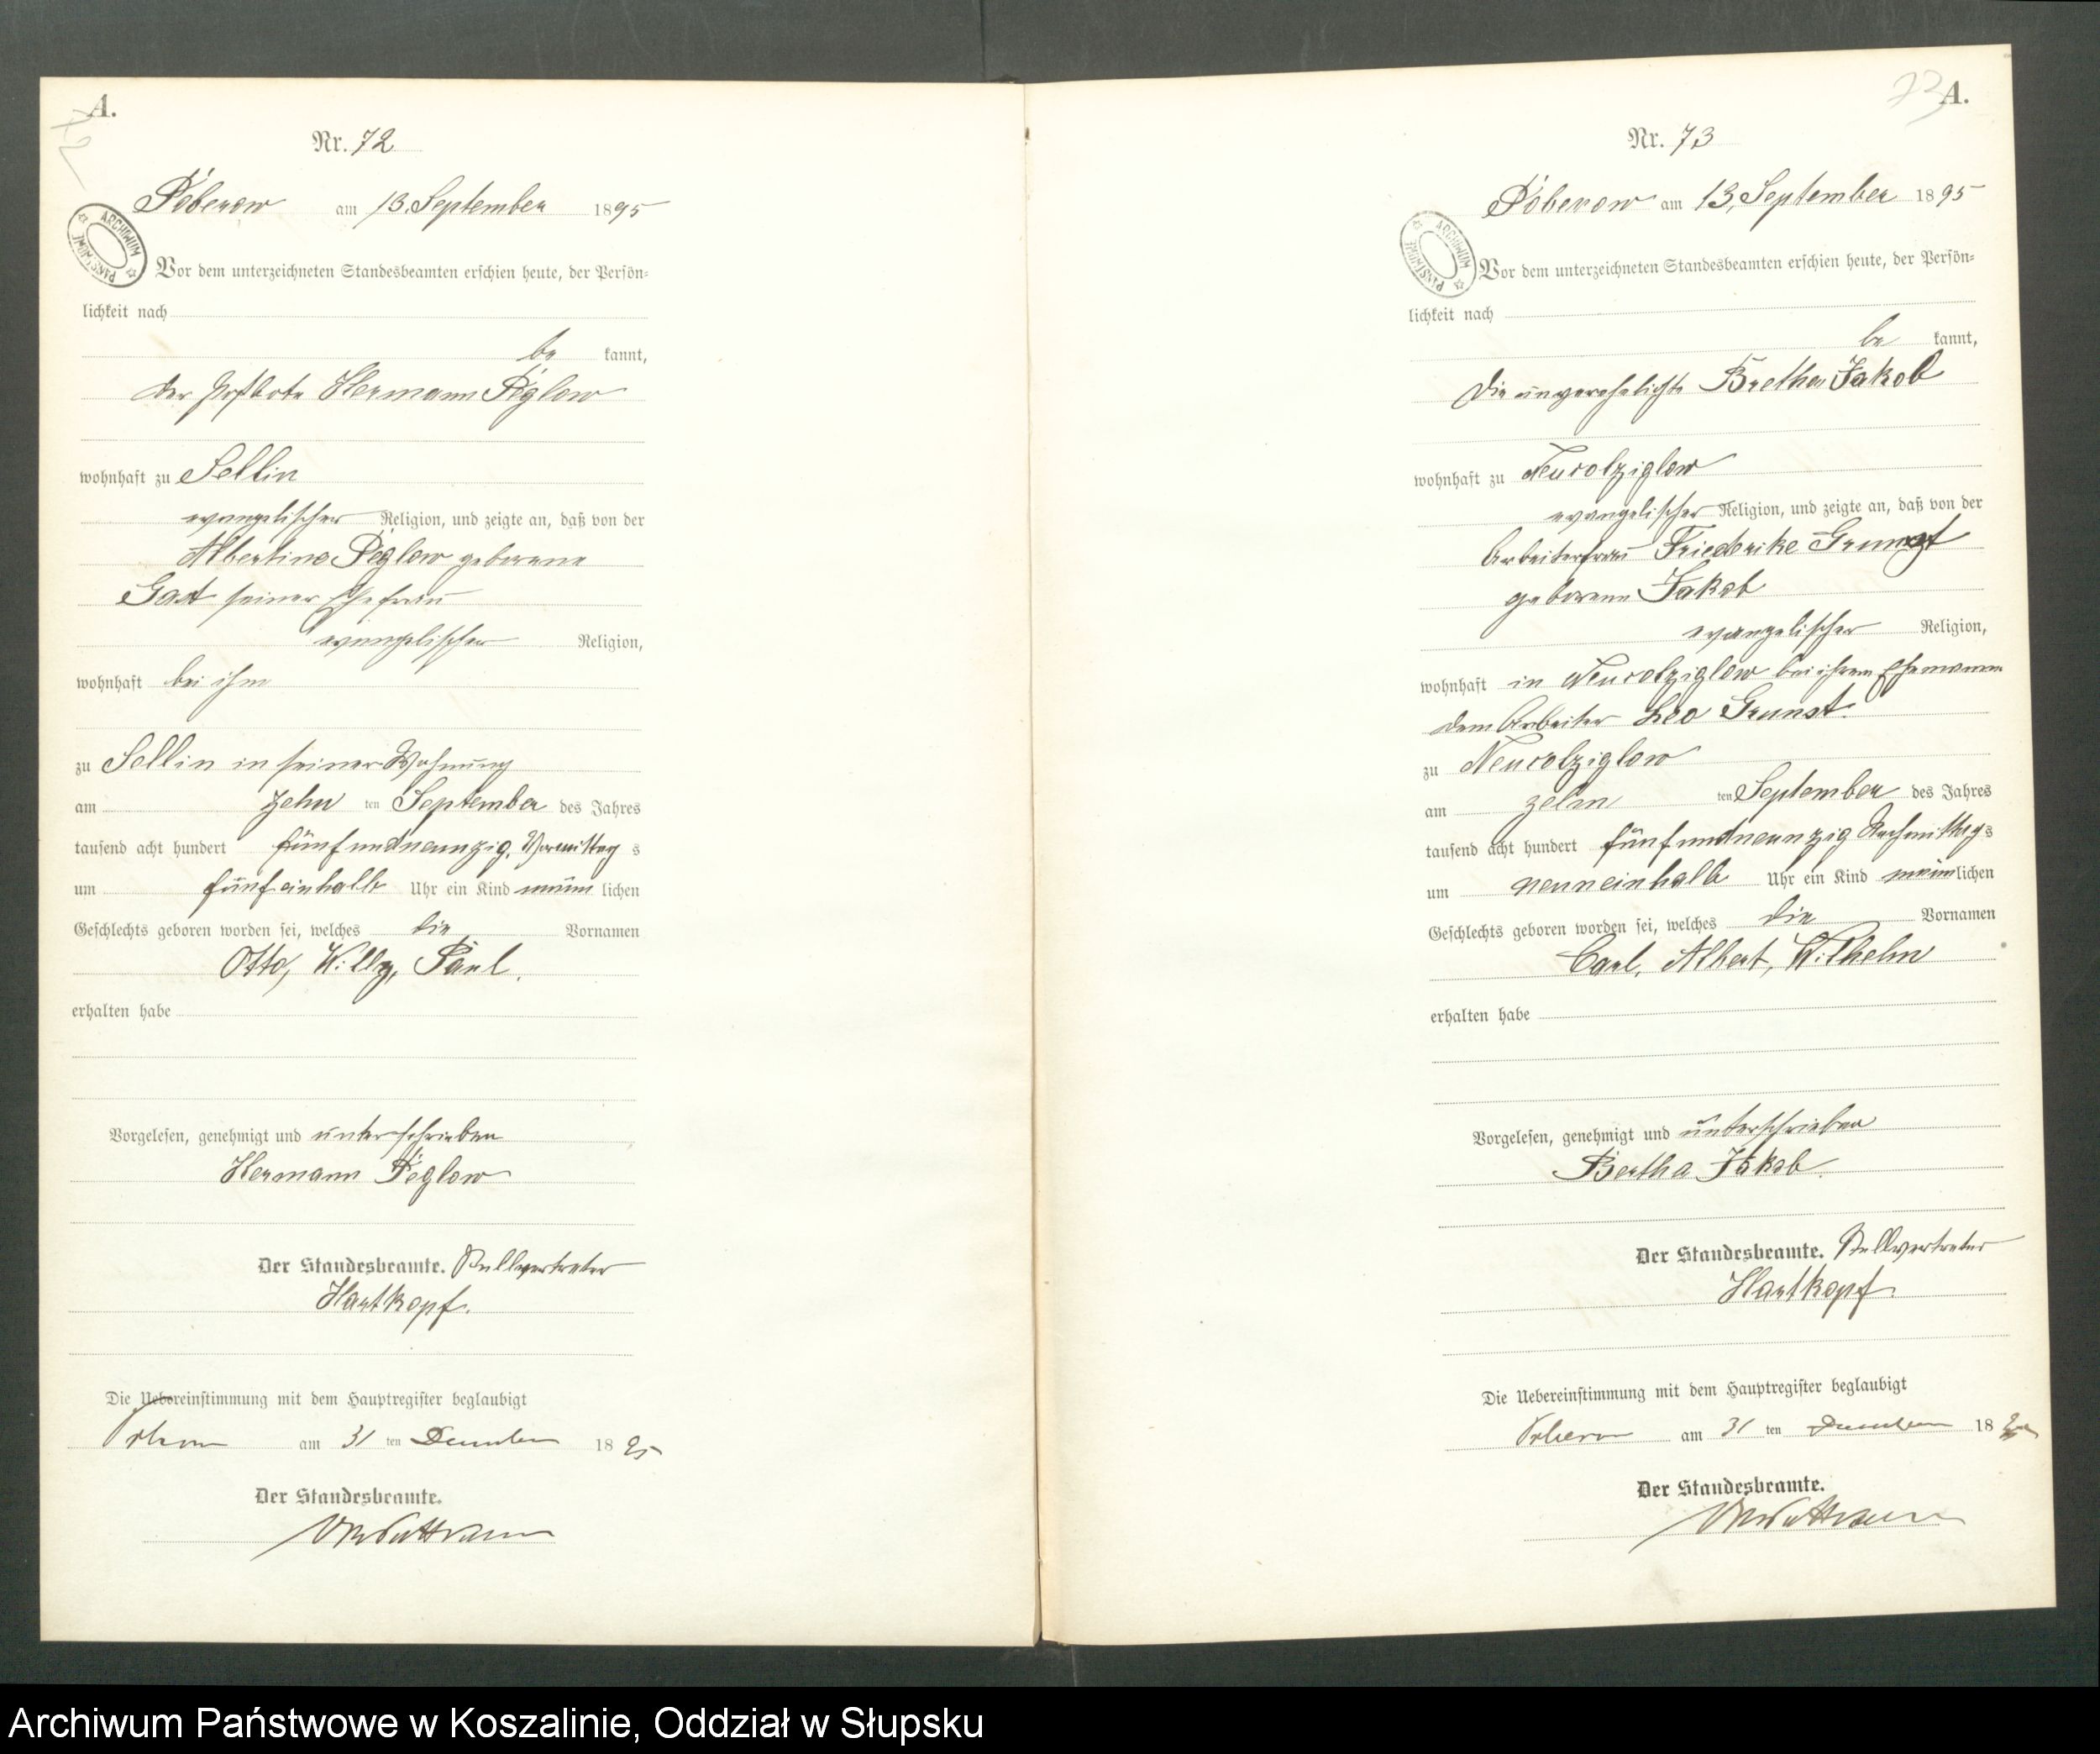 A.
72
Nr. 72
Poberow am 13. September 1895
ARCHIWUM PAŃSTWOWE
Vor dem unterzeichneten Standesbeamten erschien heute, der Persön-
lichkeit nach
be kannt,
der Postbote Hermann Peglow
wohnhaft zu Sellin
evangelischer Religion, und zeigte an, daß von der
Albertine Peglow geborene
Gast seiner Ehefrau
evangelischer Religion,
wohnhaft bei ihm
zu Sellin in seiner Wohnung
am zehn ten September des Jahres
tausend acht hundert fünfundneunzig, Vormittag s
um fünfeinhalb Uhr ein Kind männ lichen
Geschlechts geboren worden sei, welches die Vornamen
Otto, Willy, Paul.
erhalten habe
Vorgelesen, genehmigt und unterschrieben
Hermann Peglow
Der Standesbeamte. Stellvertreter
Hartkopf.
Die Uebereinstimmung mit dem Hauptregister beglaubigt
Poberow am 31 ten Dezember 1895
Der Standesbeamte.
73
A.
Nr. 73
Poberow am 13. September 1895
ARCHIWUM PAŃSTWOWE
Vor dem unterzeichneten Standesbeamten erschien heute, der Persön-
lichkeit nach
be kannt,
die unverehelichte Bretha Jakob
wohnhaft zu Neucolziglow
evangelischer Religion, und zeigte an, daß von der
Arbeiterfrau Friederike Grunst
geborene Jakob
evangelischer Religion,
wohnhaft in Neucolziglow bei ihrem Ehemann
dem Arbeiter Leo Grunst.
zu Neucolziglow
am zehn ten September des Jahres
tausend acht hundert fünfundneunzig Nachmittag s
um neuneinhalb Uhr ein Kind männ lichen
Geschlechts geboren worden sei, welches die Vornamen
Carl, Albert, Wilhelm
erhalten habe
Vorgelesen, genehmigt und unterschrieben
Bertha Jakob.
Der Standesbeamte. Stellvertreter
Hartkopf.
Die Uebereinstimmung mit dem Hauptregister beglaubigt
Poberow am 31 ten Dezember 1895
Der Standesbeamte.
Archiwum Państwowe w Koszalinie, Oddział w Słupsku